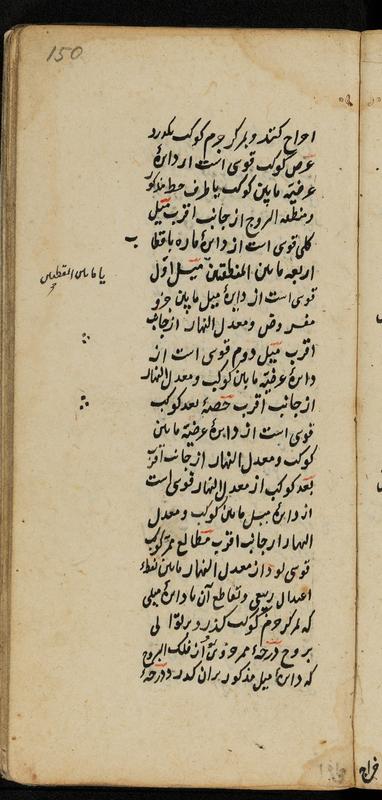 150
اخراج کنند و بمرکز جرم کوکب بگذرد
عرض کوکب قوسی است از دایرهٔ
عرضیه مابین کوکب یا طرف خط مذکور
و منطقه البروج از جانب اقرب میل
کلی قوسی است از دایرهٔ ماره باقطاب
اربعه مابین المنطقتین میل اول
یا مابین القطبین
قوسی است از دایرهٔ میل مابین جزو
مفروض و معدل النهار از جانب
اقرب میل دوم قوسی است از
دایرهٔ عرضیه مابین کوکب و معدل النهار
از جانب اقرب حصهٔ بعد کوکب
قوسی است از دایرهٔ عرضیه مابین
کوکب و معدل النهار از جانب اقرب
بعد کوکب از معدل النهار قوسی است
از دایرهٔ میل مابین کوکب و معدل
النهار از جانب اقرب مطالع ممر کوکب
قوسی بود از معدل النهار مابین نقطهٔ
اعتدال ربیعی و تقاطع آن با دایرهٔ میلی
که بمرکز جرم کوکب گذرد بر توالی
بروج درجهٔ ممر جزوی از فلک البروج
که دایرهٔ میل مذکور بران گذرد درجهٔ